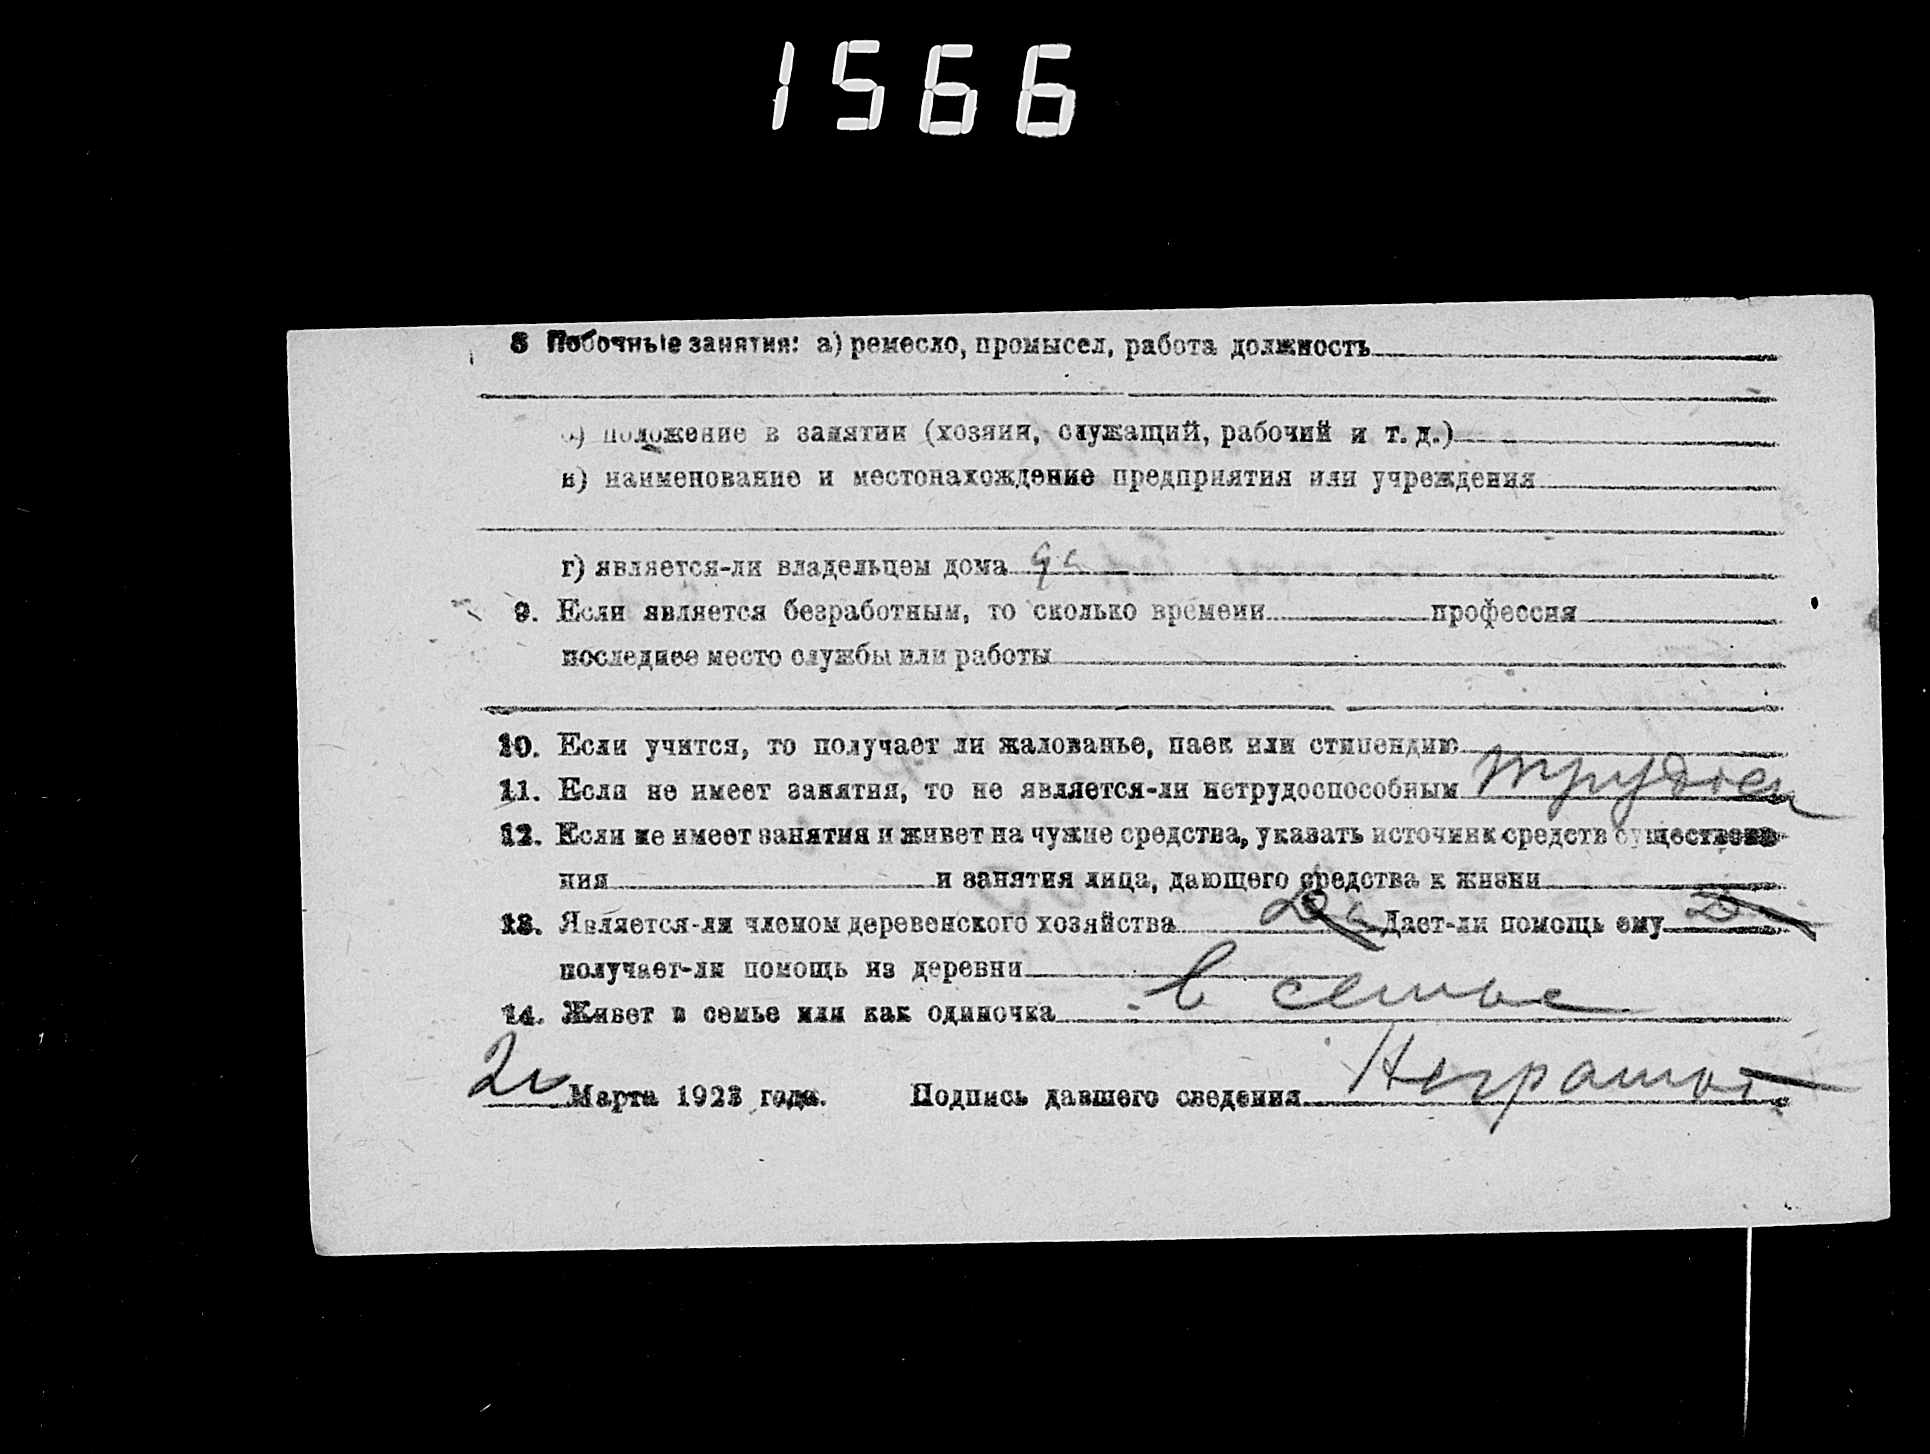 1566
8 Побочные занятия: а) ремесло, промысел, работа должность
б) положение в занятии (хозяин, служащий, рабочий и т. д.)
в) наименование и местонахождение предприятия или учреждения
г) является-ли владельцем дома да
9. Если является безработным, то сколько времени профессия
последнее место службы или работы
10. Если учится, то получает ли жалованье, паек или стипендию
11. Если не имеет занятия, то не является-ли нетрудоспособным
12. Если не имеет занятия и живет на чужие средства, указать источник средств существова-
ния и занятия лица, дающего средства к жизни
13. Является-ли членом деревенского хозяйства Да Дает-ли помощь ему
получает-ли помощь из деревни
14. Живет в семье или как одиночка в семье
Марта 1923 года. Подпись давшего сведения Неграмот